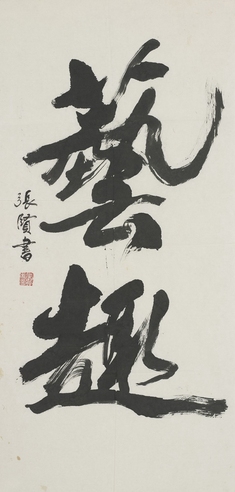 藝趣
張賢書